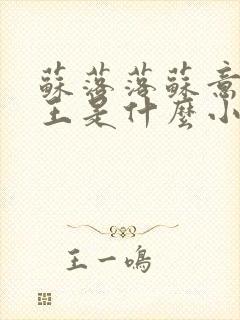 蘇落落蘇意
王是什麼小
王一鳴